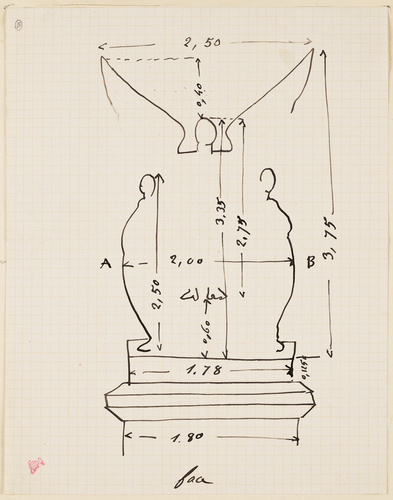 2,50
0,40
3,35
2,75
3,75
A
2,00
B
2,50
0,60
1.78
0,115
1.80
face